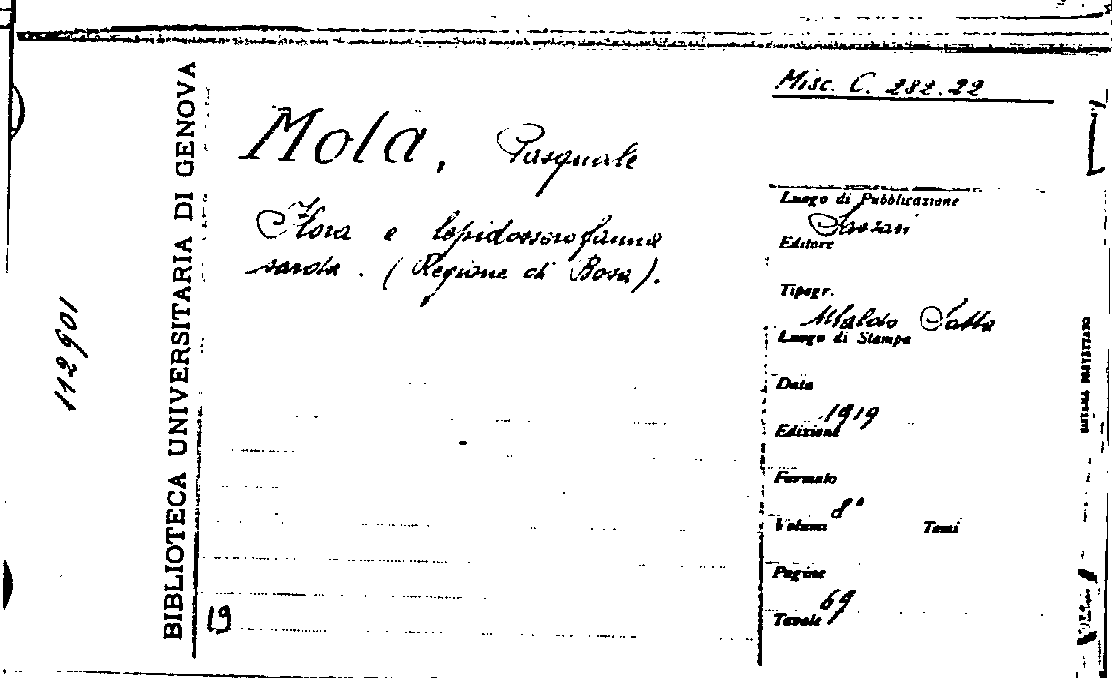 Misc. C. 282.22
BIBLIOTECA UNIVERSITARIA DI GENOVA
112901
Mola, Pasquale
Flora e lepidosirofauna
sarda. (Regione di Bosa).
Luogo di Pubblicazione
Sassari
Editore
Tipogr.
Ubaldo Satta
Luogo di Stampa
Data
1919
Edizione
Formato
8°
Volumi Tomi
Pagine
69
Tavole
19